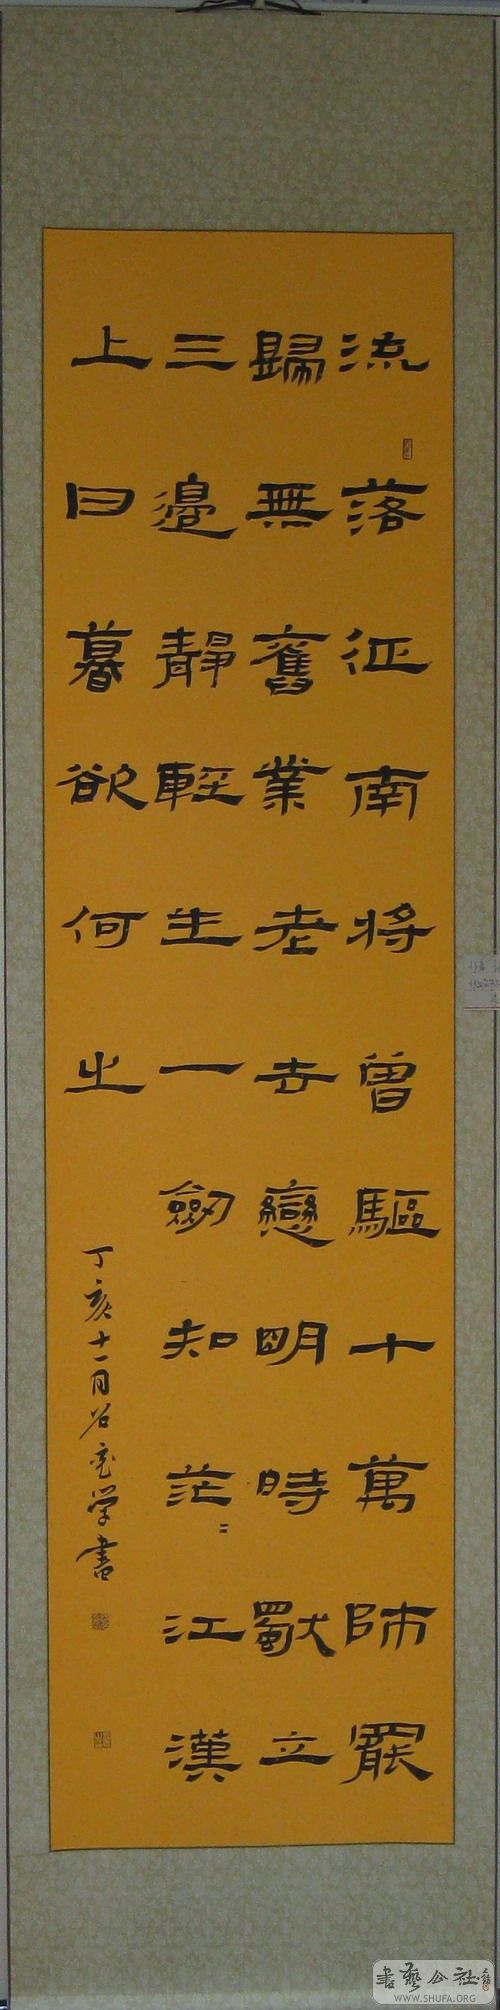 流落征南將曾驅十萬師罷
歸無舊業老去戀明時獨立
三邊靜輕生一劍知茫〻江漢
上日暮欲何之
丁亥十一月 学書
書藝公社
WWW.SHUFA.ORG